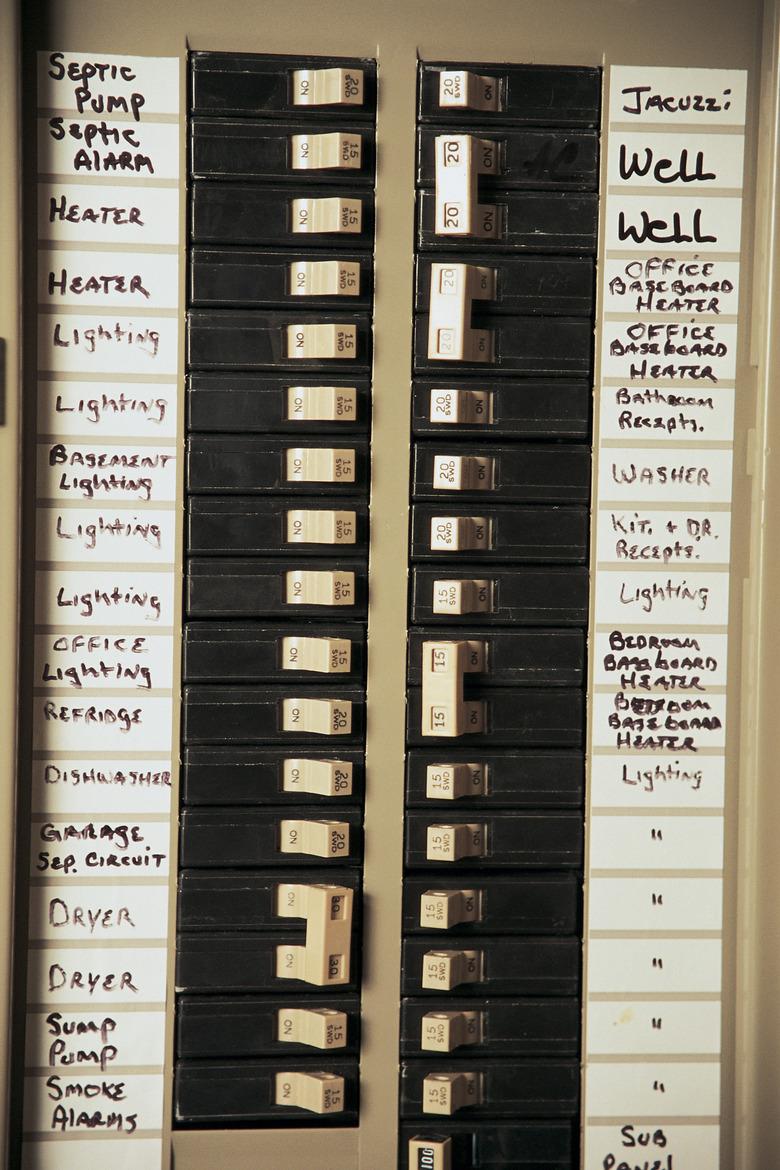 SEPTIC
PUMP
SEPTIC
ALARM
HEATER
HEATER
Lighting
Lighting
BASEMENT
Lighting
Lighting
Lighting
OFFICE
Lighting
REFRIDGE
DISHWASHER
GARAGE
SEP. CIRCUIT
DRYER
DRYER
SUMP
PUMP
SMOKE
ALARMS
ON 20 SWD
ON 15 SWD
ON 15 SWD
ON 15 SWD
ON 15 SWD
ON 15 SWD
ON 15 SWD
ON 15 SWD
ON 15 SWD
ON 15 SWD
ON 20 SWD
ON 20 SWD
ON 20 SWD
ON 30
ON 30
ON 15 SWD
ON 15 SWD
20 SWD ON
20 ON
20 ON
20 ON
20 ON
20 SWD ON
20 SWD ON
20 SWD ON
15 SWD ON
15 ON
15 ON
15 SWD ON
15 SWD ON
15 SWD ON
15 SWD ON
15 SWD ON
15 SWD ON
100
JACUZZi
WELL
WELL
OFFICE
BASEBOARD
HEATER
OFFICE
BASEBOARD
HEATER
Bathroom
Recepts.
WASHER
KiT. + DR.
Recepts.
Lighting
BEDROOM
BASEBOARD
HEATER
BEDROOM
BASEBOARD
HEATER
Lighting
"
"
"
"
"
SUB
PANEL